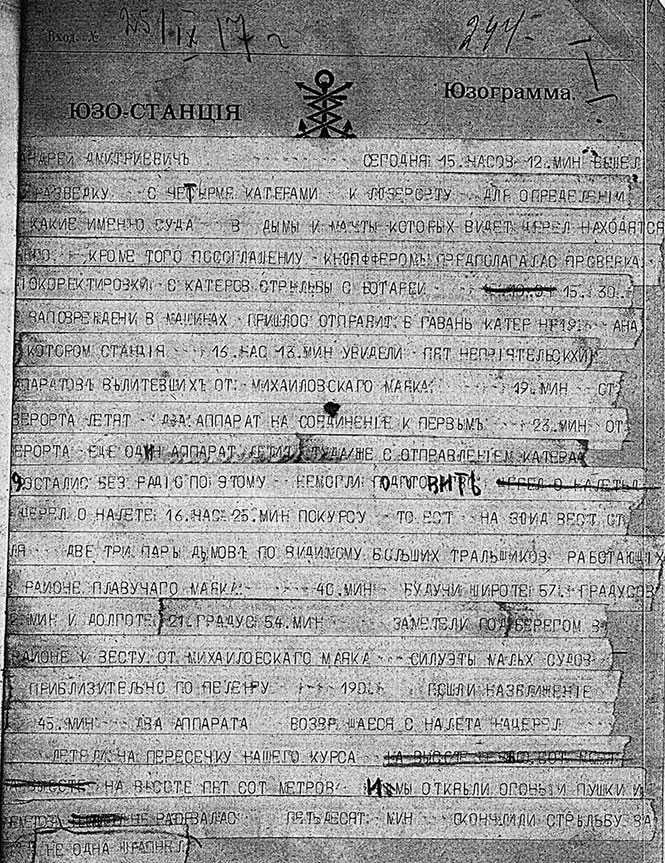 Вход. № 25/IX 17 г
244
ЮЗО-СТАНЦІЯ
Юзограмма.
АНДРЕЙ ДМИТРИЕВИЧЪ СЕГОДНЯ 15 ЧАСОВ 12 МИН ВЫШЕЛ
РАЗВЕДКУ С ЧЕТЫРМЕ КАТЕРАМИ К ЛЮЗЕРОРТУ ДЛЯ ОПРЕДЕЛЕНІИ
КАКИЕ ИМЕННО СУДА В ДЫМЫ И МАЧТЫ КОТОРЫХ ВИДЕТ ЦЕРЕЛ НАХОДЯТСЯ
КРОМЕ ТОГО ПОСОГЛАШЕНИУ КНЮПФФЕРОМЪ ПРЕДПОЛАГАЛАС ПРОВЕРКА
КОРЕКТИРОВКИ С КАТЕРОВ СТРЕЛЬБЫ С БОТАРЕИ 15 30
ЗАПОВРЕЖДЕНИ В МАШИНАХ ПРИШЛОС ОТПРАВИТ В ГАВАНЬ КАТЕР НР19 АНА
КОТОРОМ СТАНЦІЯ 16 ЧАС 13 МИН УВИДЕЛИ ПЯТ НЕПРІЯТЕЛЬСКХИ
АПАРАТОВЪ ВЪЛИТЕВШИХЪ ОТ МИХАИЛОВСКАГО МАЯКА 19 МИН ОТ
ЗЕРОРТА ЛЕТЯТ ДВА АППАРАТ НА СОЕДИНЕНІЕ К ПЕРВЫМЪ 23 МИН ОТ
ЗЕРОРТА ЕЩЕ ОДИН АППАРАТ ЛЕТИТ ТУДА/ЖЕ С ОТПРАВЛЕНІЕМ КАТЕРА
9 ОСТАЛИС БЕЗ РАДІО ПО ЭТОМУ НЕМОГЛИ ПОДГОТОВИТЬ
ЦЕРЕЛ О НАЛЕТЕ 16 ЧАС 25 МИН ПОКУРСУ ТО ЕСТ НА ЗЮИД ВЕСТ ОТ
ДВЕ ТРИ ПАРЫ ДЫМОВЪ ПО ВИДИМОМУ БОЛЬШИХ ТРАЛЬЩИКОВ РАБОТАЮЩИХ
РАЙОНЕ ПЛАВУЧАГО МАЯКА 40 МИН БУДУЧИ ШИРОТЕ 57 ГРАДУСОВ
МИН И ДОЛГОТЕ 21 ГРАДУС 54 МИН ЗАМЕТЕЛИ ПОД БЕРЕГОМ В
РАЙОНЕ К ВЕСТУ ОТ МИХАИЛОВСКАГО МАЯКА СИЛУЭТЫ МАЛЫХ СУДОВ
ПРИБЛИЗИТЕЛЬНО ПО ПЕЛЕНГУ 190 ПОШЛИ НАЗБЛИЖЕНІЕ
45 МИН ДВА АППАРАТА ВОЗВР ЩАЕСЯ С НАЛЕТА НАЦЕРЕЛ
ЛЕТЕЛИ НА ПЕРЕСЕЧКУ НАШЕГО КУРСА
НА ВЫСОТЕ ПЯТ СОТ МЕТРОВ И МЫ ОТКРЫЛИ ОГОНЬ И ПУШКИ И
НЕ РАЗРЗВАЛАС ПЕТЬДЕСЯТ МИН ОКОНЧИЛИ СТРЕЛЬБУ ЗА
НЕ ОДНА ШРАПНЕЛ